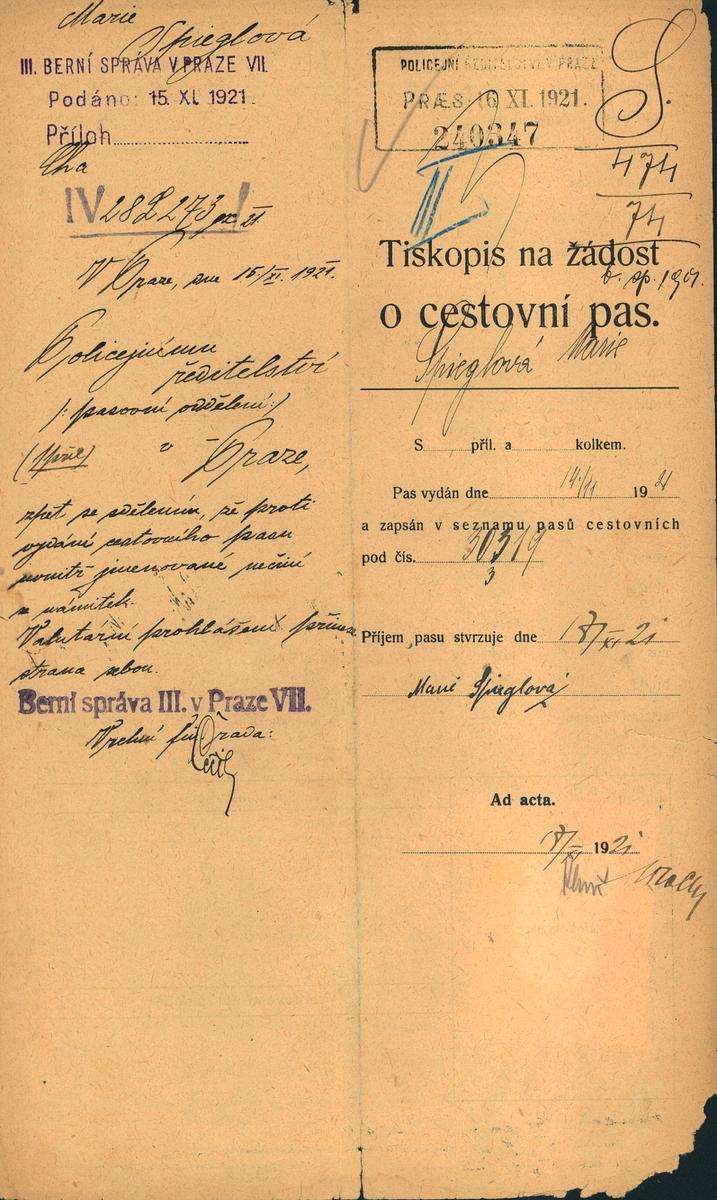 Marie
Spieglová
III. BERNÍ SPRÁVA V PRAZE VII.
Podáno: 15. XI. 1921.
Příloh
IV 28
V Praze, dne 15/XI. 1921.
Policejnímu
ředitelství
/: pasovní oddělení :/
v Praze,
zpět se sdělením, že proti
vydání cestovního pasu
uvnitř jmenované nečiní
námitek.
Valutární prohlášení
strana sebou.
Berní správa III. v Praze VII.
Vrchní rada:
POLICEJNÍ ŘEDITELSTVÍ V PRAZE
PRÆS. 16 XI. 1921.
240347
II
S.
474
74
Tiskopis na žádost
o cestovní pas.
Spieglová Marie
S příl. a kolkem.
Pas vydán dne 1921
a zapsán v seznamu pasů cestovních
pod čís. 30319
3
Příjem pasu stvrzuje dne 17/XI 21
Marie Spieglová
Ad acta.
17/XI 1921